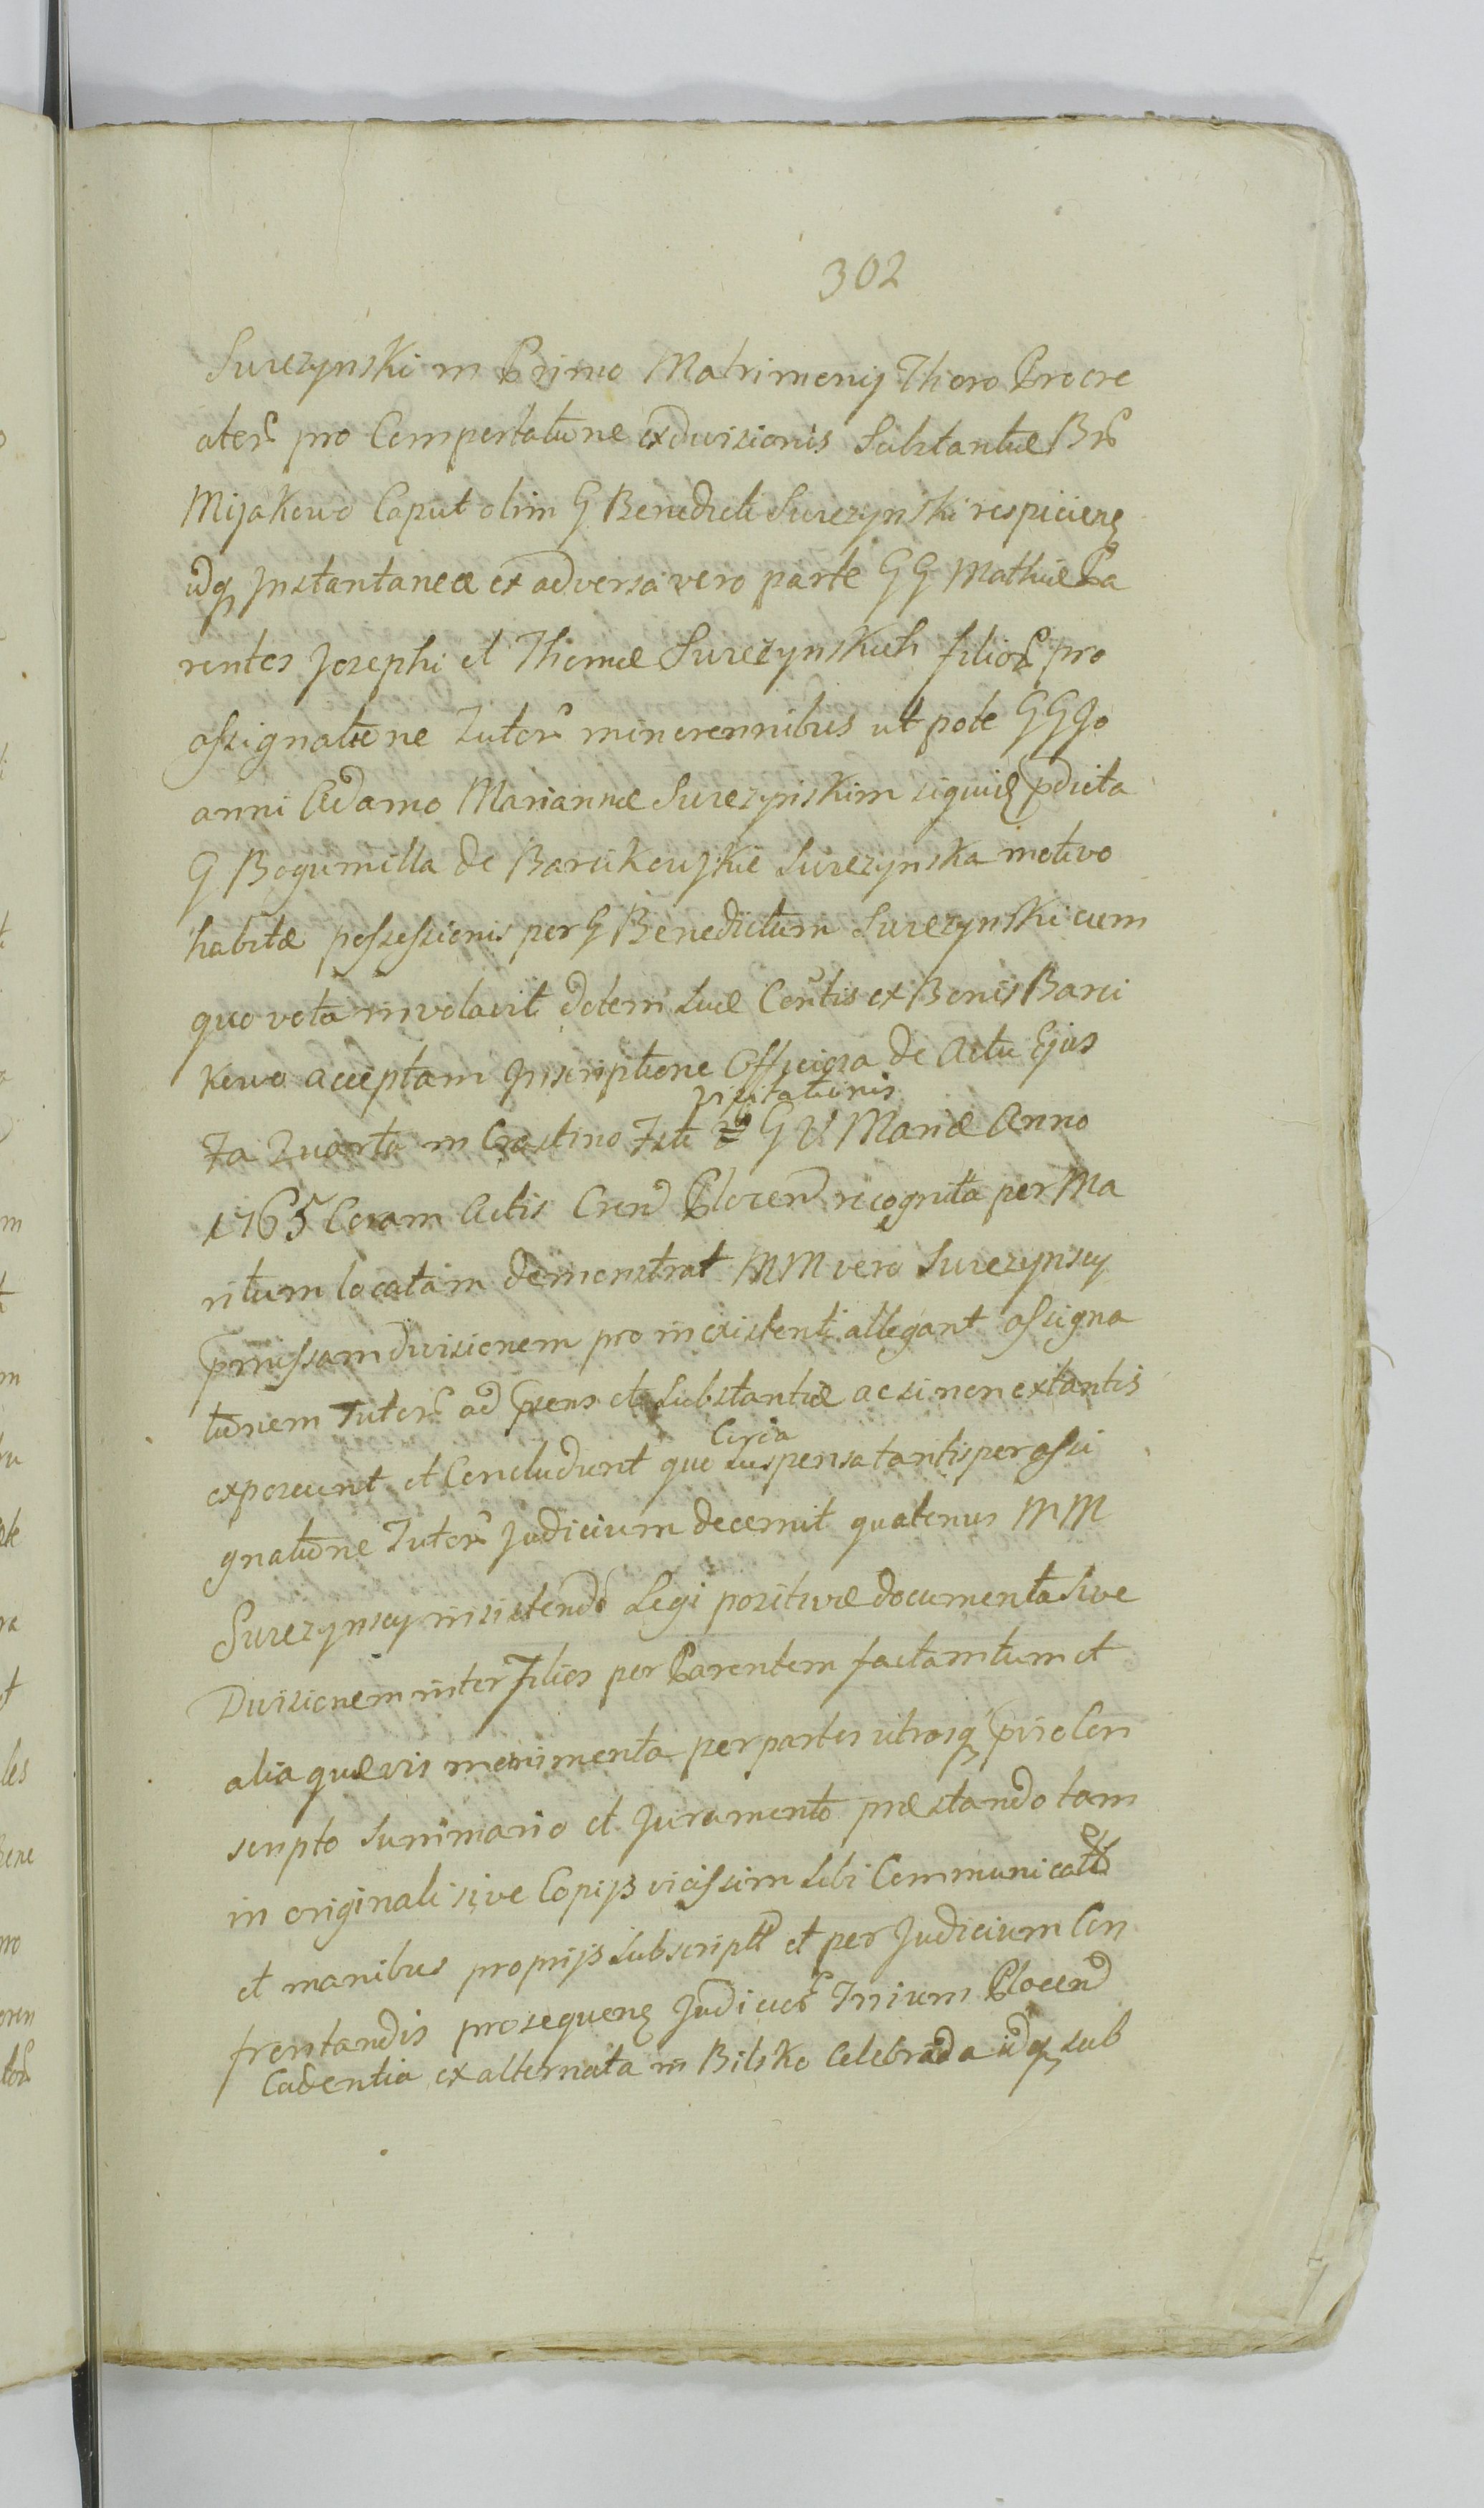 302
Surczynski in Primo Matrimonij Thoro Procre
ator pro Comportatione ex divisionis Substantiæ Br
Mijakowo Caput olim G Benedicti Surczynski respicien
idq Instantanea ex adversa vero parte GG Mathiæ Pa
rentes Josephi et Thomæ Surczynskich filior pro
assignatione Tutor minorennibus ut pote GG Jo
anni Adamo Mariannæ Surczynskim siquid pdicta
G Bogumilla de Barcikowskie Surczynska motivo
habitæ possessionis per G Benedictum Surczynski cum
quo vota involavit dotem suæ Contis ex Bonis Barci
kowo acceptam Inscriptione Officiosa de Actu Ejus
visitationis
Fa Quarta in Crastino Fsti G V Mariæ Anno
1765 Coram Actis Cren Plocen recognita per Ma
ritum locatam demonstrat MM vero Surczynscy
pmissam divisionem pro inexistenti allegant assigna
tionem Tutor ad prens et substantiæ ac si non extantis
Circa
exposcunt et Concludunt quo suspensa tantisper assi
gnatione Tutor Judicium decernit quatenus MM
Surczynscy insistendo Legi positivæ documenta sive
Divisionem inter Filios per Parentem factam tum et
alia quævis monimenta per partes utrasq pvio Con
scripto Summario et Juramento præstando tam
in originali sive Copijs vicissim sibi Communicat
et manibus proprijs subscript et per Judicium Con
frontandis prosequen Judicior Trium Plocen
Cadentia ex alternata in Bilsko Celebranda idq sub